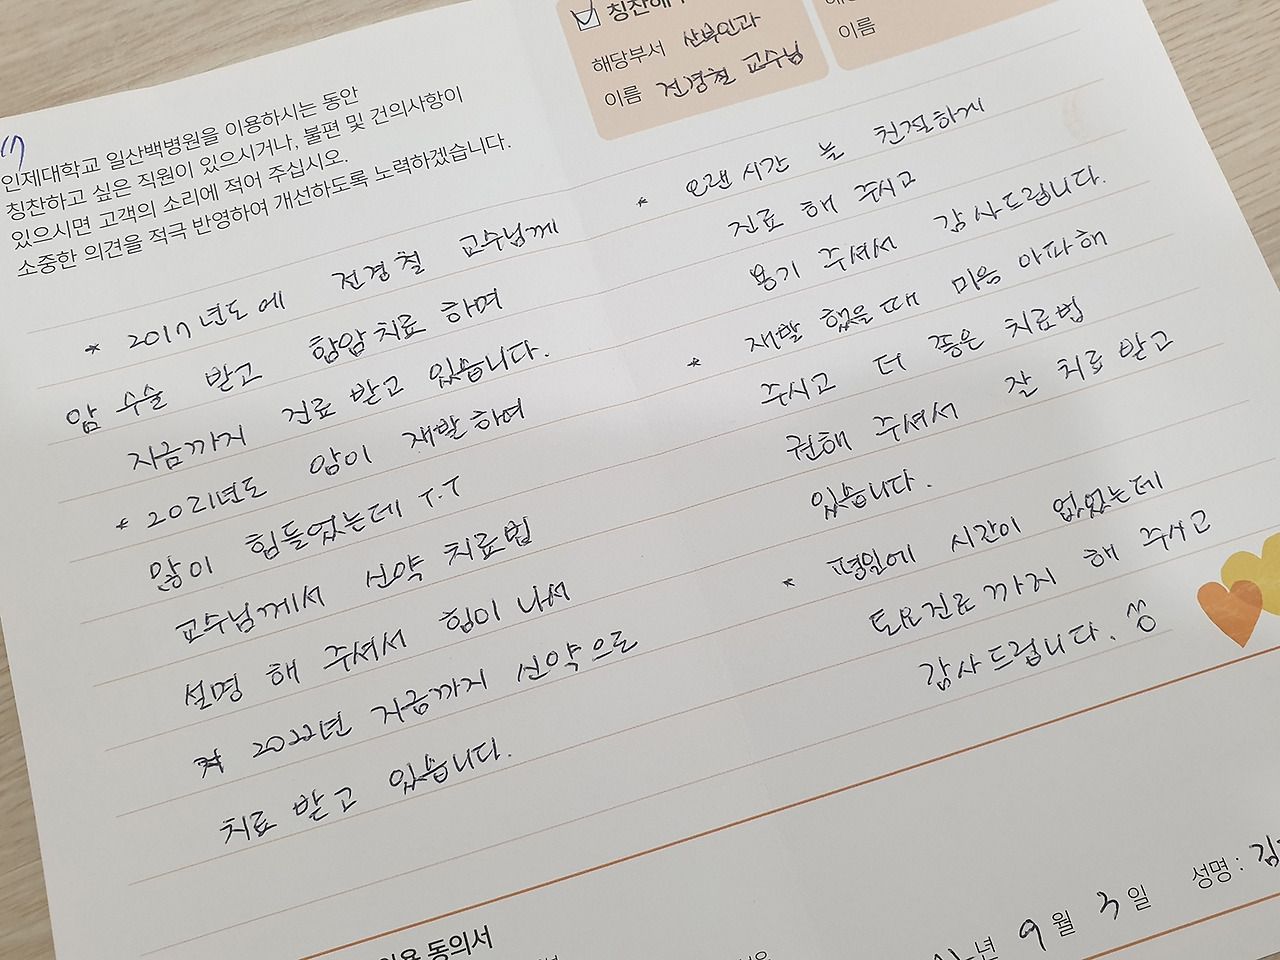 칭찬해
해당부서 산부인과
이름 전경철 교수님
이름
인제대학교 일산백병원을 이용하시는 동안
칭찬하고 싶은 직원이 있으시거나, 불편 및 건의사항이
있으시면 고객의 소리에 적어 주십시오.
소중한 의견을 적극 반영하여 개선하도록 노력하겠습니다.
* 2017년도에 전경철 교수님께
암 수술 받고 항암치료 하며
지금까지 진료 받고 있습니다.
* 2021년도 암이 재발하여
많이 힘들었는데 T.T
교수님께서 신약 치료법
설명 해 주셔서 힘이 나서
* 2022년 지금까지 신약으로
치료 받고 있습니다.
* 오랜 시간 늘 친절하게
진료 해 주시고
용기 주셔서 감사드립니다.
* 재발 했을때 마음 아파해
주시고 더 좋은 치료법
권해 주셔서 잘 치료 받고
있습니다.
* 평일에 시간이 없었는데
토요진료까지 해 주시고
감사드립니다.
동의서
년 9월 3일 성명 : 김